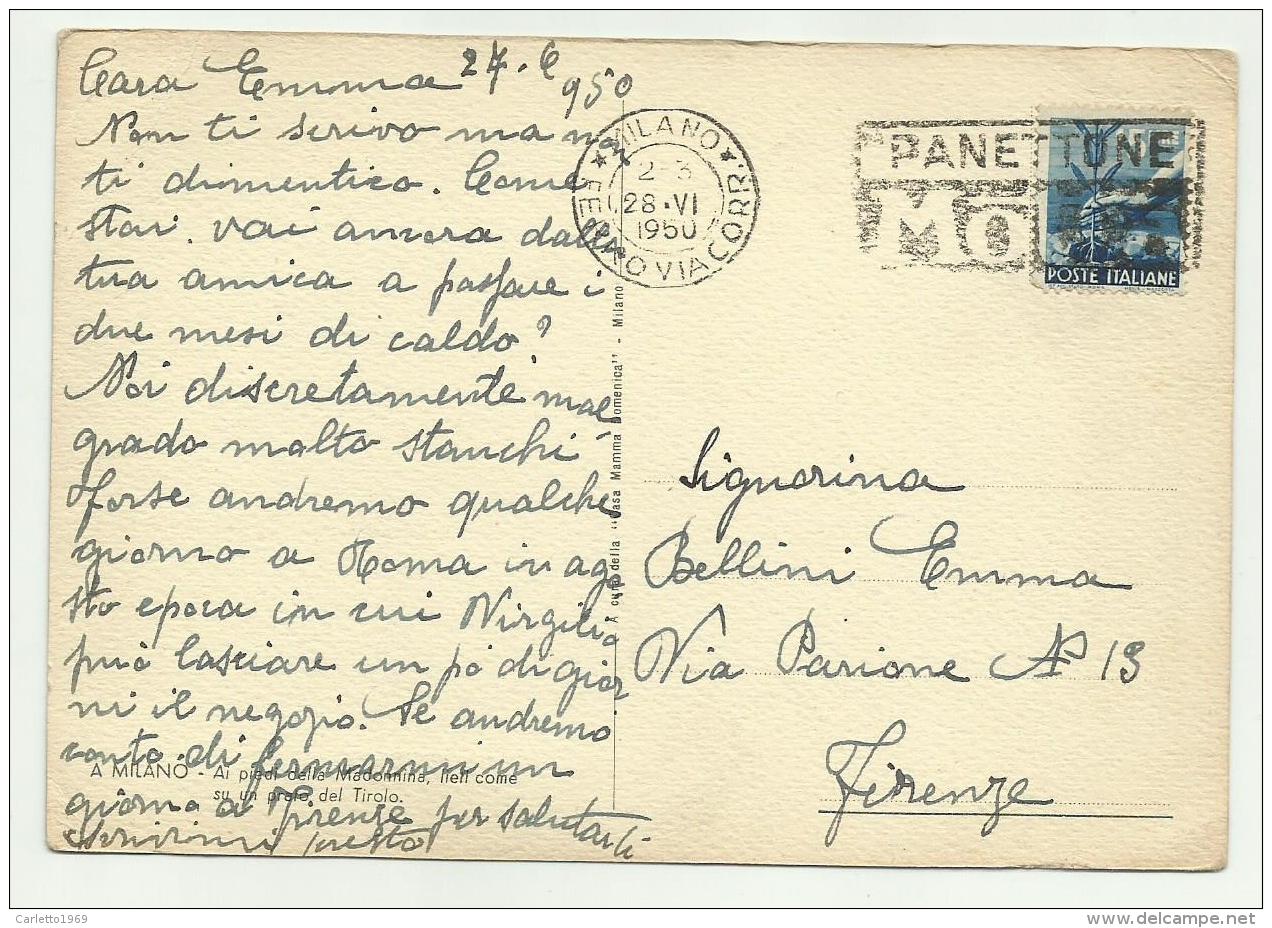 Cara Emma 27.6
950
Non ti scrivo ma non
ti dimentico. Come
stai. vai ancora dalla
tua amica a passare i
due mesi di caldo?
Noi discretamente mal
grado molto stanchi
forse andremo qualche
giorno a Roma in ago
sto epoca in cui Virgilio
può lasciare un pò di gior
ni il negozio. Se andremo
conto di fermarmi un
giorno a Firenze per salutarti
scrivimi presto
A MILANO - Ai piedi della Madonnina, lieti come
su un prato del Tirolo.
A cura della "Casa Mamma Domenica" - Milano
MILANO
2-3
28·VI
1950
FERROVIA CORR.
PANETTONE
POSTE ITALIANE
Signorina
Bellini Emma
Via Parione N 13
Firenze
Carletto1969
delcampe.net